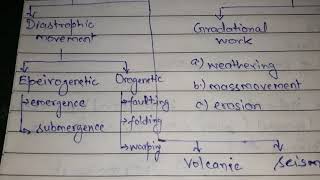 Diastrophic
movement
Gradational
work
a) weathering
b) massmovement
c) erosion
Epeirogenetic
emergence
submergence
Orogenetic
faulting
folding
warping
volcanic